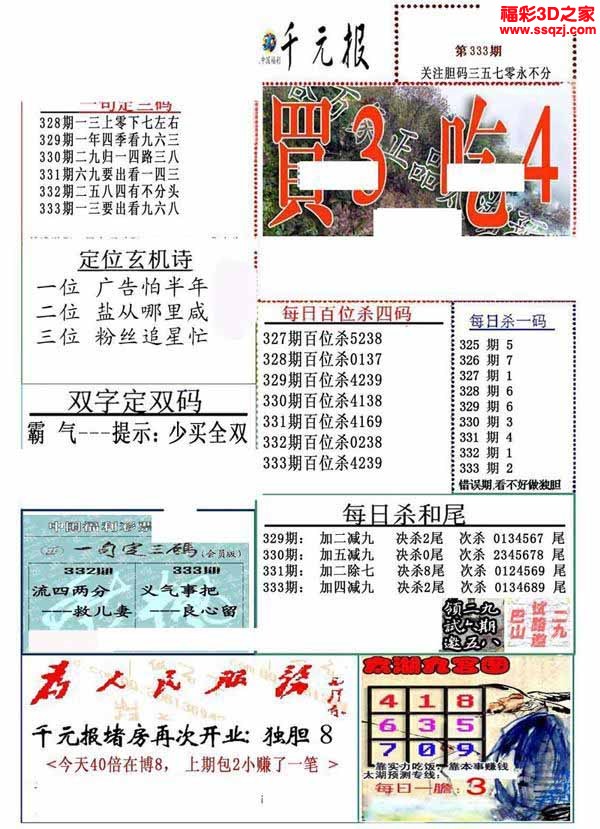 福彩3D之家
www.ssqzj.com
中国福利
千元报
第333期
关注胆码三五七零永不分
一句定三码
328期一三上零下七左右
329期一年四季看九六三
330期二九归一四路三八
331期六九要出看一四三
332期二五八四有不分头
333期一三要出看九六八
買3 吃4
正品
定位玄机诗
一位 广告怕半年
二位 盐从哪里咸
三位 粉丝追星忙
每日百位杀四码
327期百位杀5238
328期百位杀0137
329期百位杀4239
330期百位杀4138
331期百位杀4169
332期百位杀0238
333期百位杀4239
每日杀一码
325 期 5
326 期 7
327 期 1
328 期 6
329 期 6
330 期 3
331 期 4
332 期 1
333 期 2
错误期,看不好做独胆
双字定双码
霸 气---提示:少买全双
每日杀和尾
329期: 加二减九 决杀2尾 次杀 0134567 尾
330期: 加五减九 决杀0尾 次杀 2345678 尾
331期: 加二除七 决杀8尾 次杀 0124569 尾
333期: 加四减九 决杀2尾 次杀 0134689 尾
中国福利彩票
一句定三碼(会员版)
332期 333期
流四两分 义气事把
---救儿妻 ---良心留
领三九
试八期
邀五八
巴山
试路邀
二九
为人民服务
千元报堵房再次开业:独胆 8
<今天40倍在博8, 上期包2小赚了一笔 >
太湖九宫图
4 1 8
6 3 5
7 0 9
靠实力吃饭, 靠本事赚钱
太湖预测专线:
每日一胆: 3